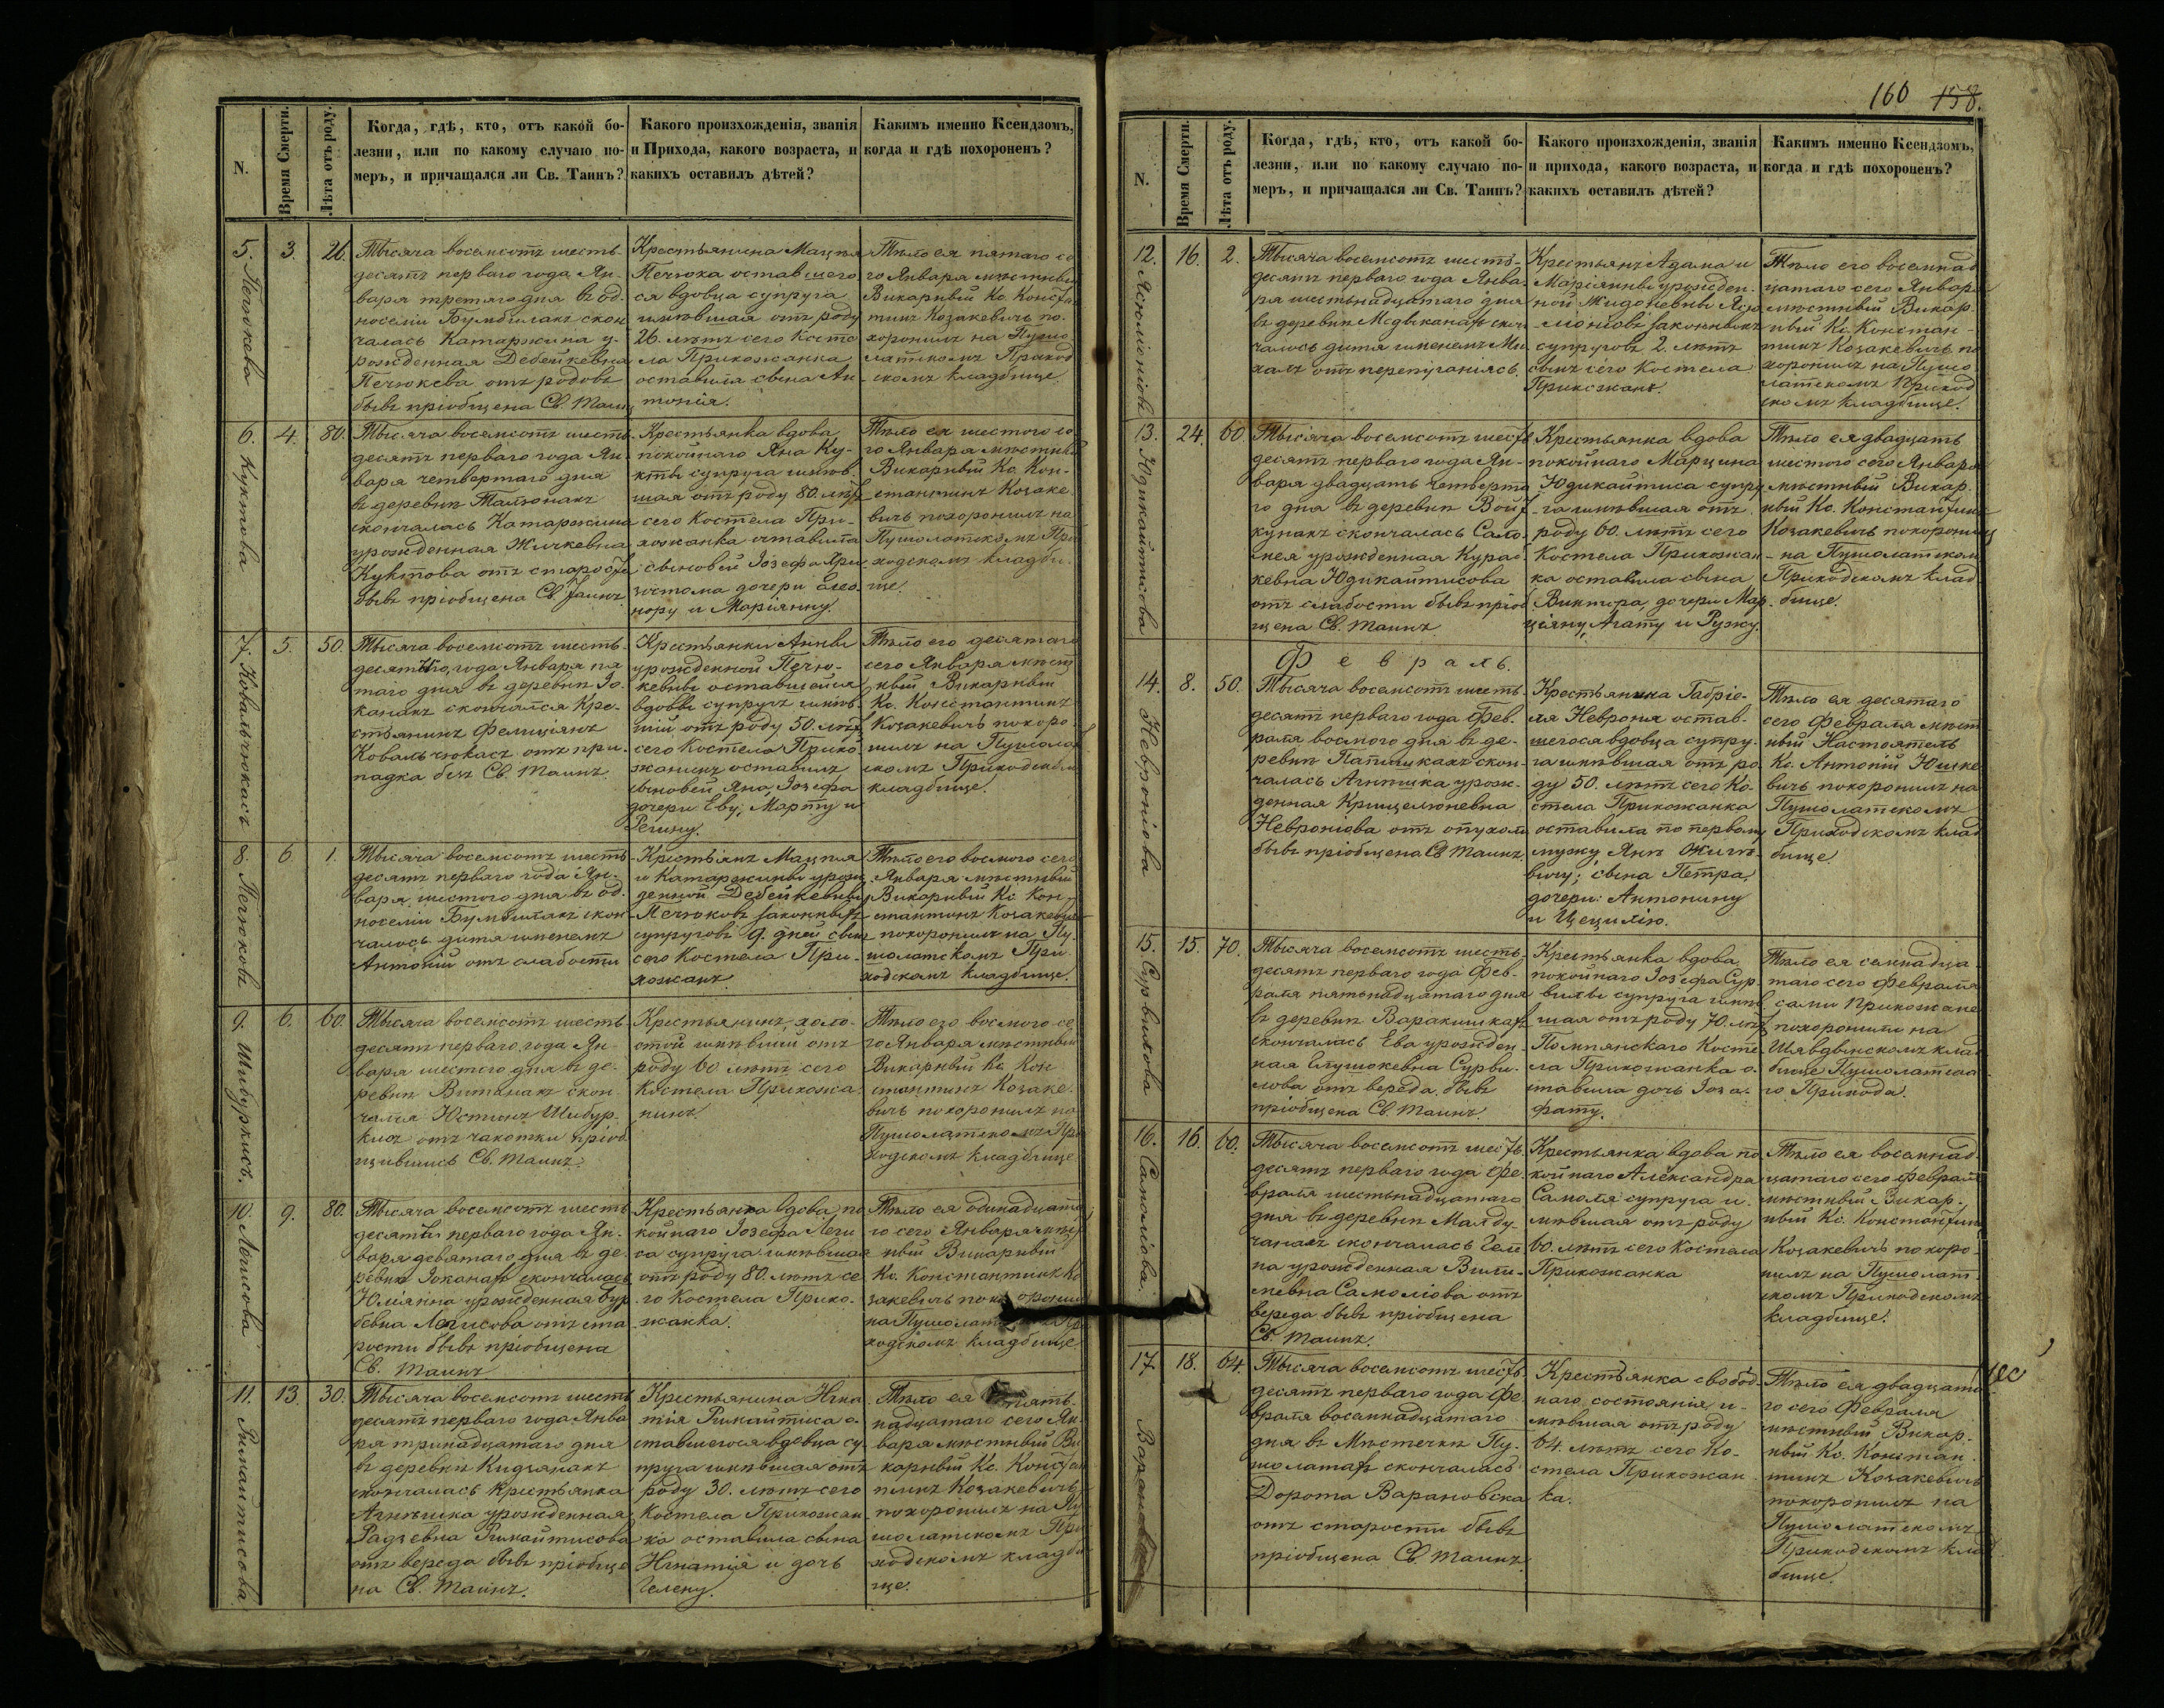 N.
Время Смерти.
Лѣта отъ роду.
Когда, гдѣ, кто, отъ какой бо-
лезни, или по какому случаю по-
меръ, и причащался ли Св. Таинъ?
Какого произхожденія, званія
и Прихода, какого возраста, и
какихъ оставилъ дѣтей?
Какимъ именно Ксендзомъ,
когда и гдѣ похороненъ?
5.
Печюкова
3.
26.
Тысяча восемсотъ шесть
десятъ перваго года Ян-
варя третяго дня въ од-
носеліи Бумбулакъ скон
чалась Катаржина у-
рожденная Дебейкевна
Печюкева отъ родовъ
бывъ пріобщена Св. Таинъ
Крестьянина Мацѣя
Печюка оставшего
ся вдовца супруга
имѣвшая отъ роду
26. лѣтъ сего Косте
ла Прихожанка
оставила сына Ан
тонія.
Тѣло ея пятаго се
го Января мѣстный
Викарный Кс. Констан
тинъ Козакевичъ по-
хоронилъ на Пушо
латскомъ Приход
скомъ кладбище
6.
Куктова
4.
80.
Тысяча восемсотъ шесть
десятъ перваго года Ян-
варя четвертаго дня
въ деревнѣ
скончалась Катаржина
урожденная Жичкевна
Куктова отъ старости
бывъ пріобщена Св. Таинъ
Крестьянка вдова
покойнаго Яна Ку-
кты супруга имѣв-
шая отъ роду 80. лѣтъ
сего Костела При-
хожанка оставила
сыновей Іозефа
дочери Елео-
нору и Маріянну.
Тѣло ея шестого се
го Января мѣстный
Викарный Кс. Кон-
стантинъ Козаке-
вичъ похоронилъ на
Пушолатскомъ При
ходскомъ кладби-
ще.
7.
Ковальчюкасъ
5.
50.
Тысяча восемсотъ шесть-
десятъ года Января пя
таго дня въ деревнѣ Іо-
канахъ скончался Кре-
стьянинъ Фелиціянъ
Ковальчюкасъ отъ при-
падка безъ Св. Таинъ.
Крестьянки Анны
урожденной Печю-
кевны оставшейся
вдовы супругъ имѣв-
шій отъ роду 50. лѣтъ
сего Костела Прихо
жанинъ оставилъ
сыновей Яна, Іозефа
дочери Еву, Марту и
Регину.
Тѣло его десятаго
сего Января мѣст
ный Викарный
Кс. Константинъ
Козакевичъ похоро-
нилъ на Пушолат
скомъ Приходскомъ
кладбище.
8.
Печюковъ
6.
1.
Тысяча восемсотъ шесть
десятъ перваго года Ян-
варя шестого дня въ од-
носеліи Бумбулакъ скон
чалось дитя именемъ
Антоній отъ слабости
Крестьянъ Мацѣя
и Катаржины урож
денной Дебейкевны
Печюковъ законныхъ
супруговъ 9. дней сынъ
сего Костела При-
хожанъ.
Тѣло его восмого сего
Января мѣстный
Викарный Кс. Кон-
стантинъ Козакевичъ
похоронилъ на Пу-
шолатскомъ При
ходскомъ кладбище.
9.
Шибуркисъ.
6.
60.
Тысяча восемсотъ шесть
десятъ перваго года Ян-
варя шестого дня въ де-
ревнѣ Витанахъ скон
чался Юстинъ Шибур-
кисъ отъ чахотки пріоб
щившись Св. Таинъ.
Крестьянинъ, холо-
стой имѣвшій отъ
роду 60 лѣтъ сего
Костела Прихожа-
нинъ.
Тѣло его восмого се
го Января мѣстный
Викарный Кс. Кон
стантинъ Козаке-
вичъ похоронилъ на
Пушолатскомъ При
ходскомъ кладбище
10.
Легисова
9.
80.
Тысяча восемсотъ шесть
десятъ перваго года Ян-
варя девятаго дня въ де-
ревнѣ Іоканахъ скончалась
Юліянна урожденная Бур
бевна Легисова отъ ста
рости бывъ пріобщена
Св. Таинъ
Крестьянка вдова, по
койнаго Іозефа Леги
са супруга имѣвшая
отъ роду 80. лѣтъ се
го Костела Прихо-
жанка.
Тѣло ея одинадцата
го сего Января мѣст
ный Викарный
Кс. Константинъ Ко
закевичъ похоронилъ
на Пушолатскомъ При
ходскомъ кладбище
11.
Римайтисова
13.
30.
Тысяча восемсотъ шесть
десятъ перваго года Янва
ря тринадцатаго дня
въ деревнѣ Кидзянахъ
скончалась крестьянка
Агнѣшка урожденная
Радзевна Римайтисова
отъ вереда бывъ пріобще
на Св. Таинъ.
Крестьянина Игна
тія Римайтиса о-
ставшегося вдовца су-
пруга имѣвшая отъ
роду 30. лѣтъ сего
Костела Прихожан
ка оставила сына
Игнатія и дочь
Гелену.
Тѣло ея пять-
надцатаго сего Ян-
варя мѣстный Ви
карный Кс. Констан
тинъ Козакевичъ
похоронилъ на Пу
шолатскомъ При
ходскомъ кладби
ще.
160 158.
N.
Время Смерти.
Лѣта отъ роду.
Когда, гдѣ, кто, отъ какой бо-
лезни, или по какому случаю по-
меръ, и причащался ли Св. Таинъ?
Какого произхожденія, званія
и прихода, какого возраста, и
какихъ оставилъ дѣтей?
Какимъ именно Ксендзомъ,
когда и гдѣ похороненъ?
12.
16.
2.
Тысяча восемсотъ шесть-
десятъ перваго года Янва-
ря шестьнадцатаго дня
въ деревнѣ скон
чалось дитя именемъ Ми-
халъ отъ перепуганіясъ.
Крестьянъ Адама и
Маріянны урожден-
ной
законныхъ
супруговъ 2. лѣтъ
сынъ сего Костела
Прихожанъ.
Тѣло его восемнад
цатаго сего Января
мѣстный Викар-
ный Кс. Констан-
тинъ Козакевичъ по
хоронилъ на Пушо
латскомъ Приход
скомъ кладбище.
13.
Юдикайтисова
24.
60
Тысяча восемсотъ шесть
десятъ перваго года Ян-
варя двадцать четверта
го дня въ деревнѣ Войт
кунахъ скончалась Сало-
мея урожденная Курас-
кевна Юдикайтисова
отъ слабости бывъ пріоб
щена Св. Таинъ
Крестьянка вдова
покойнаго Марцина
Юдикайтиса супру
га имѣвшая отъ
роду 60. лѣтъ сего
Костела Прихожан
ка оставила сына
Виктора, дочери Мар
цыяну, Агату и Рузку.
Тѣло ея двадцать
шестого сего Января
мѣстный Викар-
ный Кс. Константинъ
Козакевичъ похоронилъ
на Пушолатскомъ
Приходскомъ клад
бище.
Февраль.
14.
Невронiова
8.
50.
Тысяча восемсотъ шесть-
десятъ перваго года Фев-
раля восмого дня въ де-
ревнѣ Папишкахъ скон-
чалась Агнѣшка урож-
денная Крищелюневна
Невронiова отъ опухоли
бывъ пріобщена Св Таинъ.
Крестьянина Габріе-
ля Невроня остав-
шегося вдовца супру-
га имѣвшая отъ ро
ду 50. лѣтъ сего Ко-
стела Прихожанка
оставила по первому
мужу Янѣ
сына Петра,
дочери: Антонину
и Цецилію.
Тѣло ея десятаго
сего Февраля мѣст
ный Настоятель
Кс. Антоній Юшке
вичъ похоронилъ на
Пушолатскомъ
Приходскомъ клад
бище.
15.
Сурвилова
15.
70.
Тысяча восемсотъ шесть-
десятъ перваго года Фев-
раля пятьнадцатаго дня
въ деревнѣ Воракишкахъ
скончалась Ева урожден-
ная Ягушокевна Сурви-
лова отъ вереда бывъ
пріобщена Св. Таинъ.
Крестьянка вдова
покойнаго Іозефа Сур
вилы супруга имѣв
шая отъ роду 70. лѣтъ
Помпянскаго Косте
ла Прихожанка о-
ставила дочь Іоза-
фату.
Тѣло ея семнадца
таго сего Февраля
сами Прихожане
похоронили на
кла
бище Пушолатска
го Прихода.
16.
Самолiова.
16.
60.
Тысяча восемсотъ шесть
десятъ перваго года Фе-
враля шестьнадцатаго
дня въ деревнѣ Малду
чанахъ скончалась Геле
на урожденная Вили-
мевна Самолiова отъ
вереда бывъ пріобщена
Св. Таинъ.
Крестьянка вдова по
койнаго Александра
Самоля супруга и-
мѣвшая отъ роду
60. лѣтъ сего Костела
Прихожанка
Тѣло ея восемнад-
цатаго сего Февраля
мѣстный Викар-
ный Кс. Константинъ
Козакевичъ похоро-
нилъ на Пушолат-
скомъ Приходскомъ
кладбище.
17.
18.
64.
Тысяча восемсотъ шесть
десятъ перваго года Фе-
враля восемнадцатаго
дня въ Мѣстечкѣ Пу-
шолатахъ скончалась
Дорота Варановска
отъ старости бывъ
пріобщена Св. Таинъ.
Крестьянка свобод-
наго состоянія и-
мѣвшая отъ роду
64. лѣтъ сего Ко-
стела Прихожан
ка.
Тѣло ея двадцата
го сего Февраля
мѣстный Викар-
ный Кс. Констан-
тинъ Козакевичъ
похоронилъ на
Пушолатскомъ
Приходскомъ кла
бище.